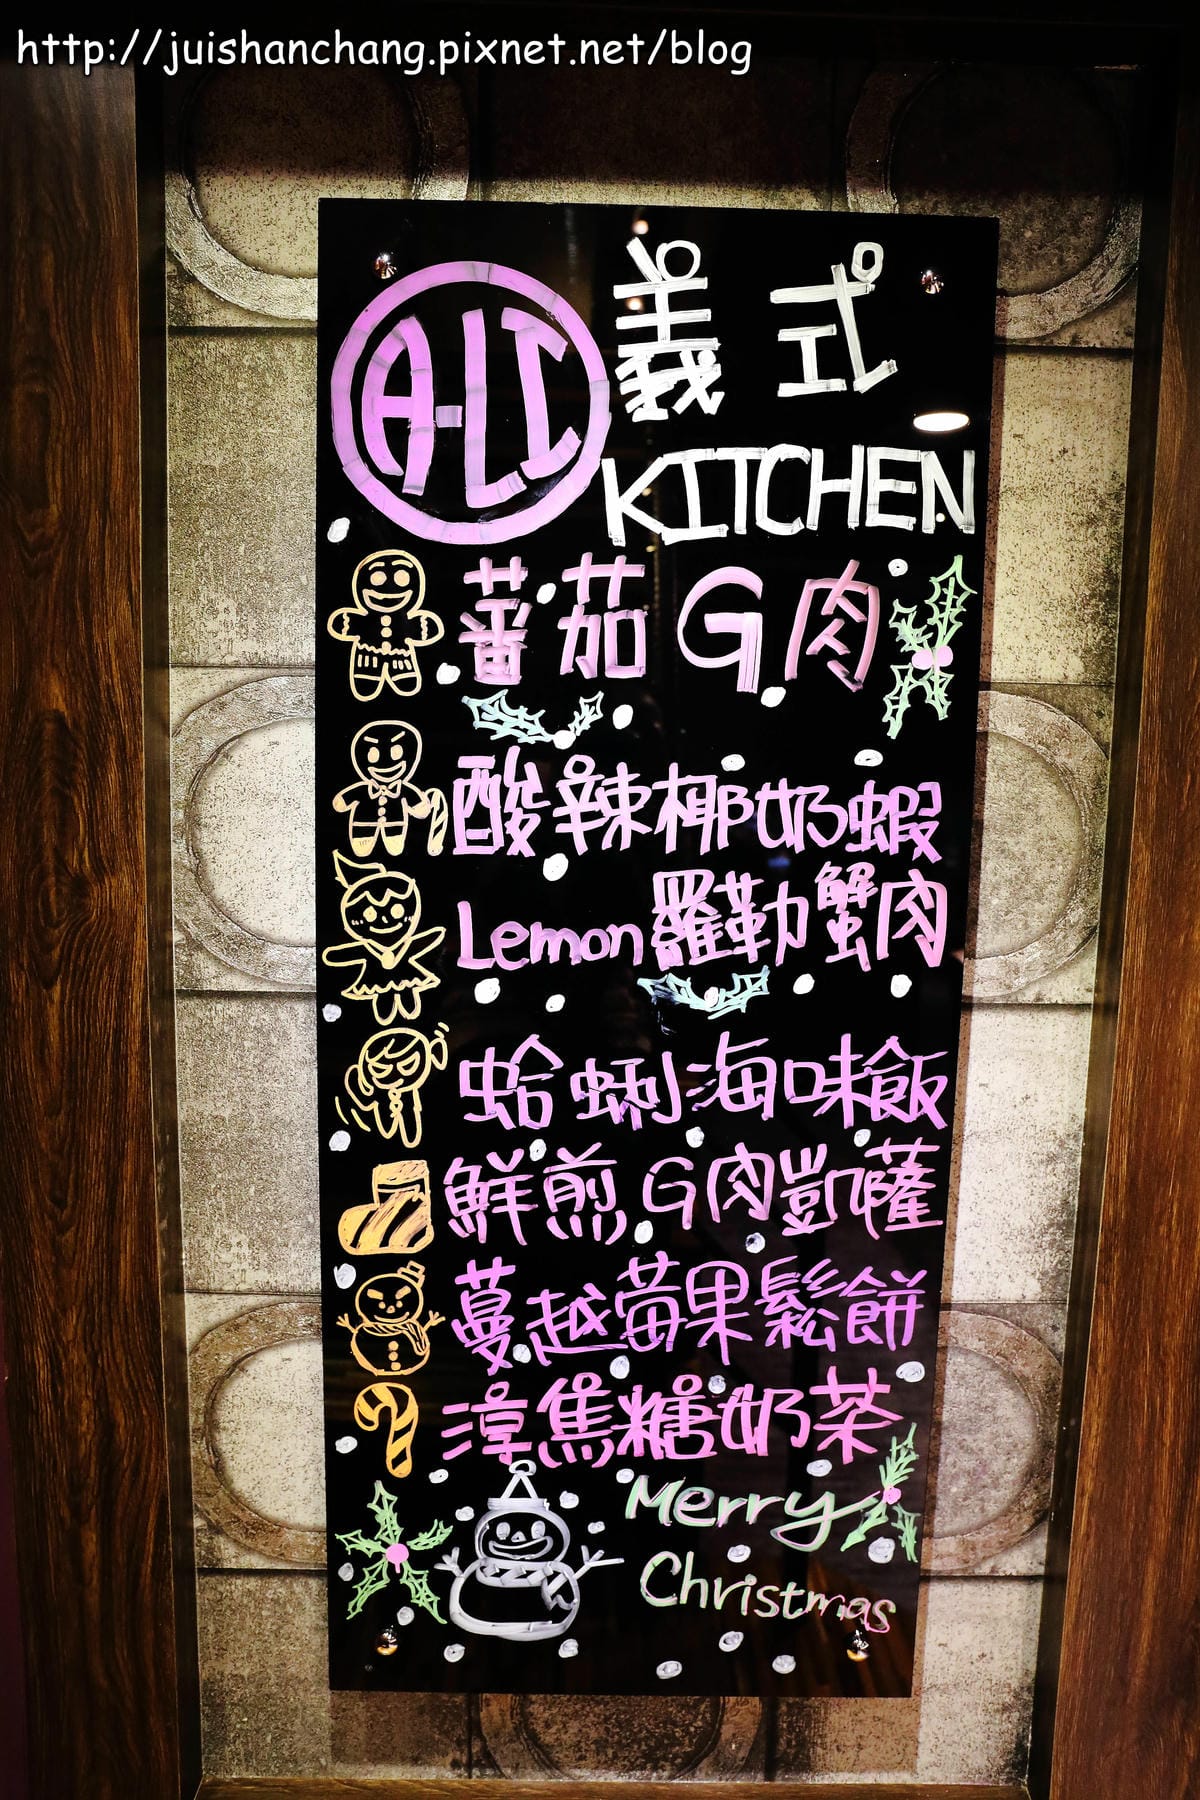 http://juishanchang.pixnet.net/blog
A-LI 義式
KITCHEN
蕃茄G肉
酸辣椰奶蝦
Lemon羅勒蟹肉
蛤蜊海味飯
鮮煎G肉凱薩
蔓越莓果鬆餅
淳焦糖奶茶
Merry
Christmas